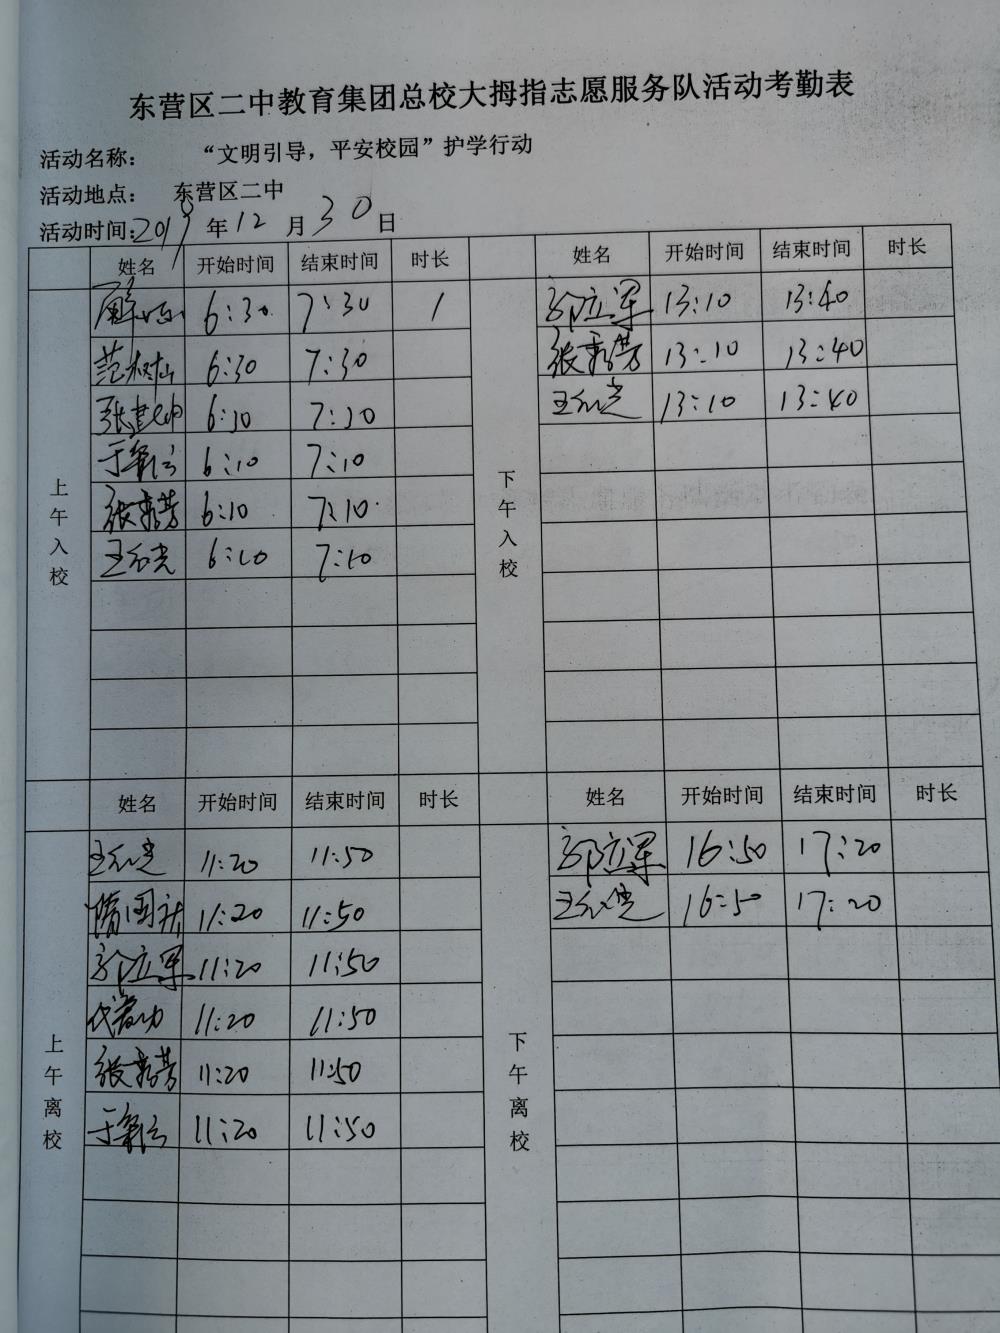 东营区二中教育集团总校大拇指志愿服务队活动考勤表
活动名称: “文明引导，平安校园”护学行动
活动地点: 东营区二中
活动时间:2019年12月30日
姓名 开始时间 结束时间 时长 姓名 开始时间 结束时间 时长
上午入校
6:30 7:30 1
6:30 7:30
6:30 7:30
6:10 7:10
6:10 7:10
6:10 7:10
下午入校
郭立军 13:10 13:40
13:10 13:40
13:10 13:40
姓名 开始时间 结束时间 时长 姓名 开始时间 结束时间 时长
上午离校
11:20 11:50
隋国庆 11:20 11:50
郭立军 11:20 11:50
11:20 11:50
11:20 11:50
11:20 11:50
下午离校
郭立军 16:50 17:20
16:50 17:20